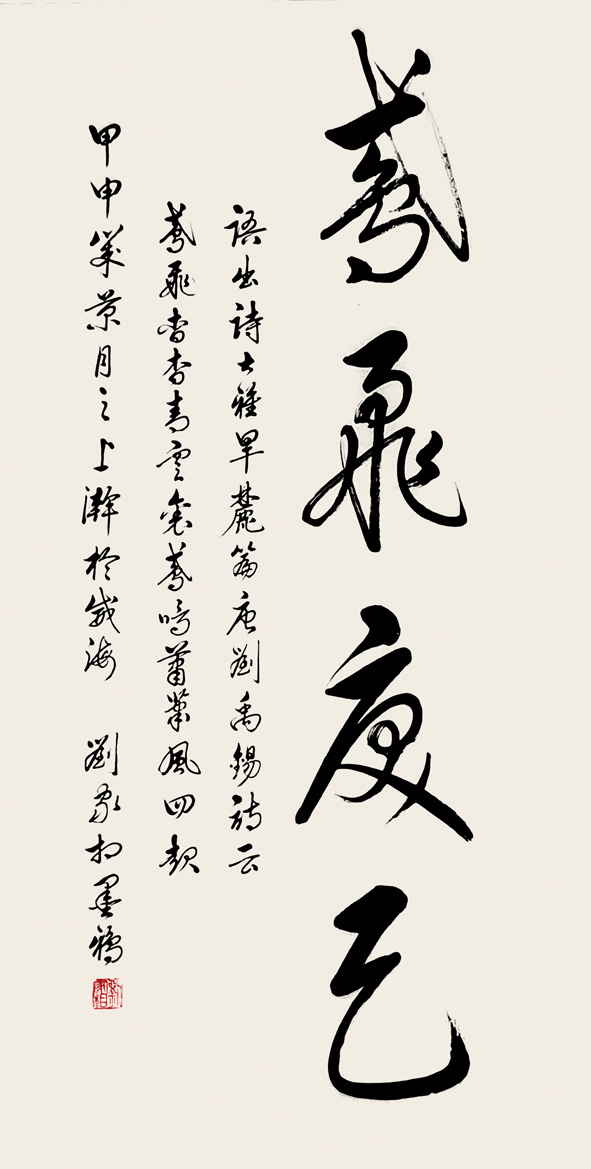 鳶飛戾天
語出詩大雅旱麓篇唐劉禹錫詩云
鳶飛杳杳青雲裏鳶鳴蕭蕭風四起
甲申歲景月之上澣於威海 劉家相墨鴉